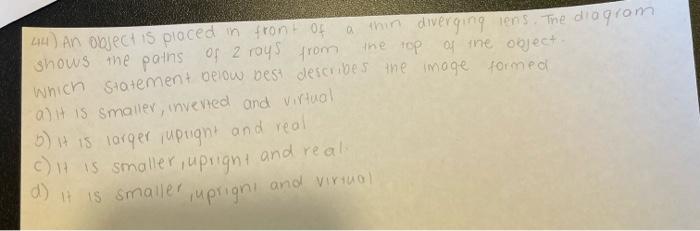 44) An object is placed in front of a thin diverging lens. The diagram
shows the paths of 2 rays from the top of the object.
Which statement below best describes the image formed
a) it is smaller, inverted and virtual
b) it is larger, upright and real
c) it is smaller, upright and real.
d) it is smaller, upright and virtual